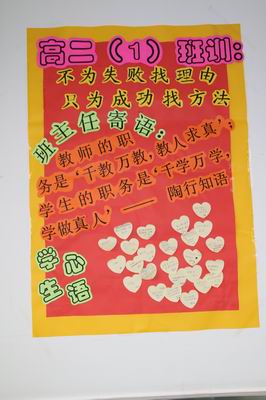 高二（1）班训：
不为失败找理由
只为成功找方法
班主任寄语：
教师的职
务是‘千教万教，教人求真’；
学生的职务是‘千学万学，
学做真人’ —— 陶行知语
学生
心语